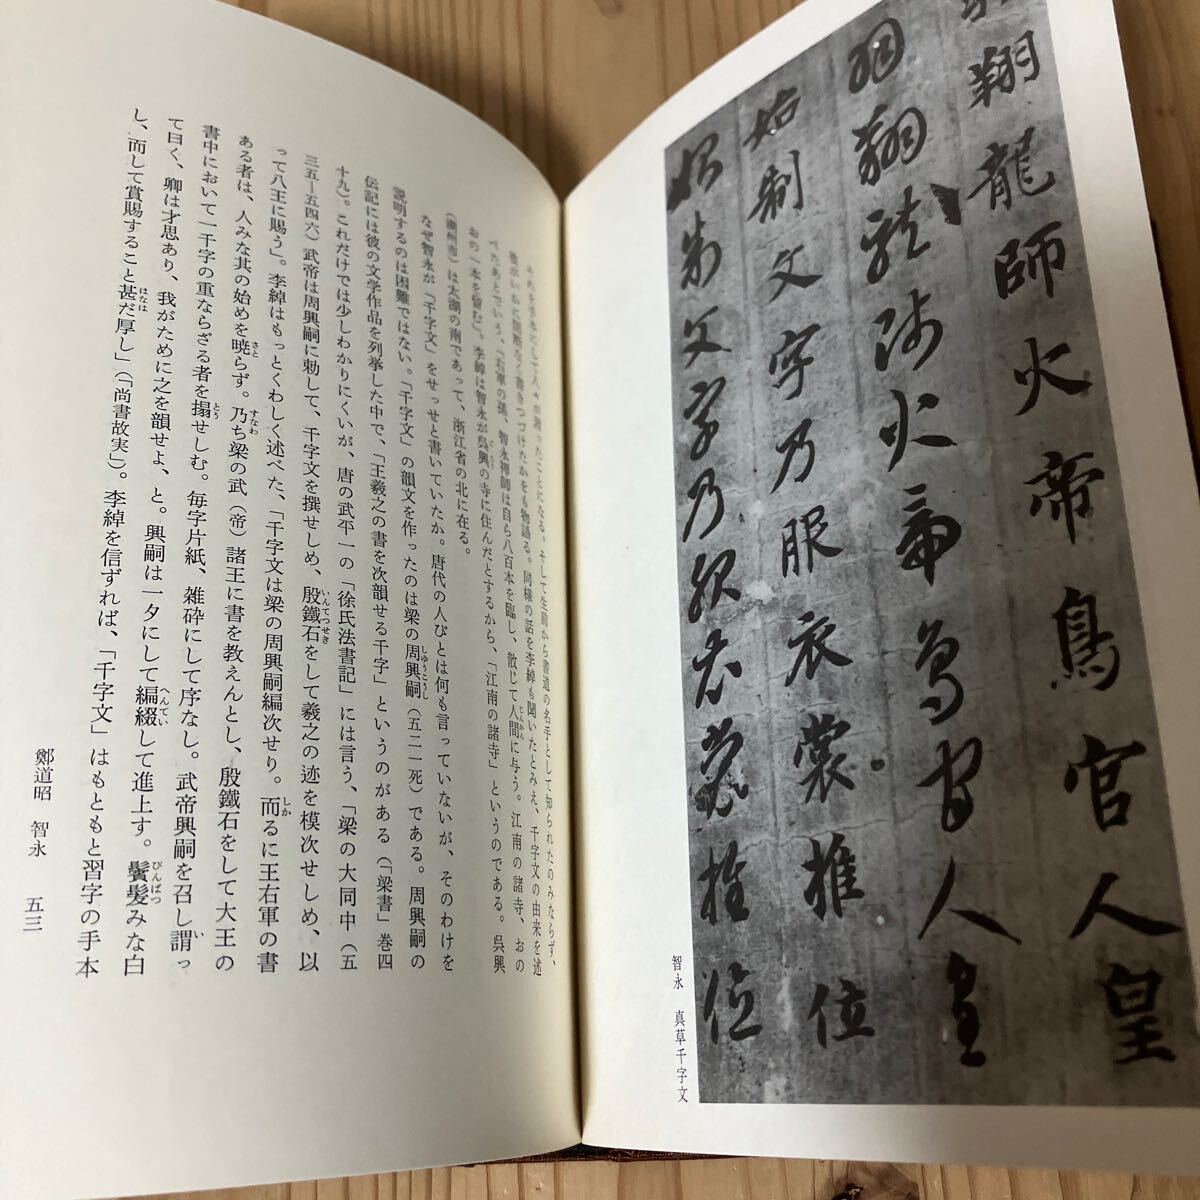 翔龍師火帝鳥官人皇
羽翔龍師火帝鳥官人皇
始制文字乃服衣裳推位
始制文字乃服衣裳推位
智永 真草千字文
それを多本にして人々が習ったことになる。そして生前から書道の名手として知られたのみならず、
彼がいかに間断なく書きつづけたかをも物語る。同様の話を李綽も聞いたとみえ、千字文の由来を述
べたあとでいう、「右軍の孫、智永禅師は自ら八百本を臨し、散じて人間に与う。江南の諸寺、おの
おの一本を留む」。李綽は智永が呉興の寺に住んだとするから、「江南の諸寺」というのである。呉興
(湖州市)は太湖の南であって、浙江省の北に在る。
なぜ智永が「千字文」をせっせと書いていたか。唐代の人びとは何も言っていないが、そのわけを
説明するのは困難ではない。「千字文」の韻文を作ったのは梁の周興嗣(五二一死)である。周興嗣の
伝記には彼の文学作品を列挙した中で、「王羲之の書を次韻せる千字」というのがある(「梁書」巻四
十九)。これだけでは少しわかりにくいが、唐の武平一の「徐氏法書記」には言う、「梁の大同中(五
三五—五四六)武帝は周興嗣に勅して、千字文を撰せしめ、殷鐵石をして羲之の迹を模次せしめ、以
って八王に賜う」。李綽はもっとくわしく述べた、「千字文は梁の周興嗣編次せり。而るに王右軍の書
ある者は、人みな其の始めを暁らず。乃ち梁の武(帝)諸王に書を教えんとし、殷鐵石をして大王の
書中において一千字の重ならざる者を搨せしむ。毎字片紙、雑砕にして序なし。武帝興嗣を召し謂っ
て曰く、卿は才思あり、我がために之を韻せよ、と。興嗣は一夕にして編綴して進上す。鬢髪みな白
し、而して賞賜すること甚だ厚し」(「尚書故実」)。李綽を信ずれば、「千字文」はもともと習字の手本
鄭道昭 智永 五三